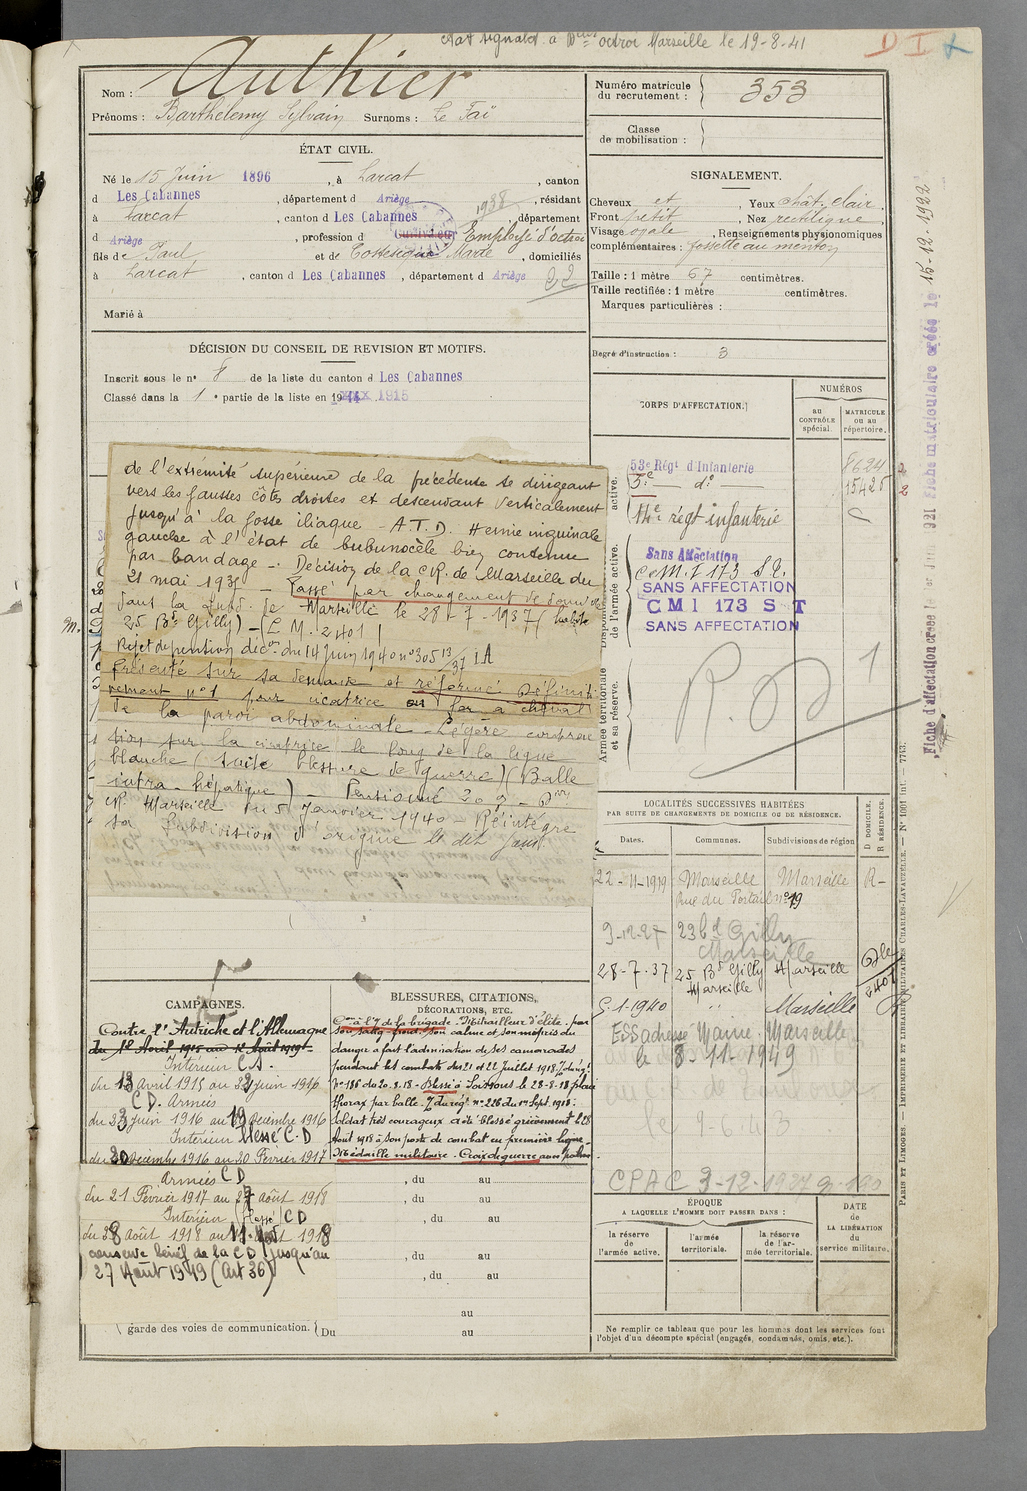 Etat signalét. à Dcteur octroi Marseille le 19-8-41
D I
Nom : Authier
Prénoms : Barthélemy Sylvain Surnoms : Le Faï
Numéro matricule du recrutement : 353
Classe de mobilisation :
ÉTAT CIVIL.
Né le 15 Juin 1896, à Larcat, canton
d Les Cabannes, département d Ariège, résidant
à Larcat, canton d Les Cabannes, département
d Ariège, profession d Cultivateur Employé d'octroi
fils de Paul et de Marie, domiciliés
à Larcat, canton d Les Cabannes, département d Ariège
1938
22
Marié à
SIGNALEMENT.
Cheveux et Yeux chât. clair,
Front petit, Nez rectiligne
Visage ovale, Renseignements physionomiques
complémentaires : fossette au menton
Taille : 1 mètre 67 centimètres.
Taille rectifiée : 1 mètre centimètres.
Marques particulières :
Degré d'instruction : 3
DÉCISION DU CONSEIL DE REVISION ET MOTIFS.
Inscrit sous le n° 8 de la liste du canton d Les Cabannes
Classé dans la 1e partie de la liste en 1915
CORPS D'AFFECTATION.
NUMÉROS
au CONTRÔLE spécial.
MATRICULE ou au répertoire.
53e Régt d'Infanterie 8624
5e do 15425
14e régt infanterie
Sans Affectation
C.M.I 173 S.R.
SANS AFFECTATION
CMI 173 S T
SANS AFFECTATION
R.D 1
active.
de l'armée active.
Armée territoriale et sa réserve.
de l'extrémité supérieure de la précédente se dirigeant
vers les fausses côtes droites et descendant verticalement
jusqu'à la fosse iliaque - A.T.D. Hernie inguinale
gauche à l'état de bubonocèle bien contenue
par bandage -. Décision de la CR. de Marseille du
21 mai 1935 - Passé par changement de domicile
dans la Subd. de Marseille le 28-7-1937 (habite
25 Bd Gilly) - (L.M. 2401)
Rejet de pension décon du 14 Juin 1940 n° 30513/37 IA
Présenté sur sa demande et réformé définiti-
vement n°1 pour cicatrice en fer à cheval
de la paroi abdominale - Légère
sur la cicatrice le long de la ligne
blanche (suite blessure de guerre) (Balle
infra-hépatique) - Pensionné 20% -
CR Marseille du 5 Janvier 1940 - Réintégré
sa Subdivision d'origine le dit jour
LOCALITÉS SUCCESSIVES HABITÉES
PAR SUITE DE CHANGEMENTS DE DOMICILE OU DE RÉSIDENCE.
Dates. Communes. Subdivisions de région
D DOMICILE. R RÉSIDENCE.
22-11-1919 Marseille Marseille R-
Rue du Portail n° 19
9-12-27 23 bd Gilly
Marseille
28-7-37 25 Bd Gilly Marseille Dle
Marseille 2401
5-1-1940 " " Marseille
Marseille
le 8-11-1949
le 9-6-43
CPAC 3-12-1927
CAMPAGNES.
Contre l'Autriche et l'Allemagne
du 12 Avril 1915 au 12 Août 1919.
Intérieur CS.
du 13 avril 1915 au 22 juin 1916
CD. Armées
du 23 juin 1916 au 19 décembre 1916
Intérieur blessé C.D
du 20 décembre 1916 au 20 Février 1917
Armées CD
du 21 Février 1917 au 27 août 1918
Intérieur (blessé) CD
du 28 août 1918 au
conserve bénéf. de la CD jusqu'au
27 Août 1919 (Art 36)
BLESSURES, CITATIONS,
DÉCORATIONS, ETC.
Con à l'O de la brigade - Mitrailleur d'élite, par
son sang-froid, son calme et son mépris du
danger a fait l'admiration de ses camarades
pendant les combats des 21 et 22 Juillet 1918. O. du régt
N° 186 du 20.8.18 - Blessé à Soissons le 28-8-18 plaie
thorax par balle. O. du régt n° 226 du 1er Sept. 1918.
Soldat très courageux a été blessé grièvement le 28
Août 1918 à son poste de combat en première ligne.
Médaille militaire - Croix de guerre avec palme.
, du au
, du au
, du au
, du au
, du au
au
garde des voies de communication. Du au
ÉPOQUE
A LAQUELLE L'HOMME DOIT PASSER DANS :
la réserve de l'armée active.
l'armée territoriale.
la réserve de l'armée territoriale.
DATE de LA LIBÉRATION du service militaire.
Ne remplir ce tableau que pour les hommes dont les services font
l'objet d'un décompte spécial (engagés, condamnés, omis, etc.).
PARIS ET LIMOGES. — IMPRIMERIE ET LIBRAIRIE MILITAIRES CHARLES-LAVAUZELLE. — N° 1001 Int. — 7743.
Fiche matriculaire créée le 15-12-1922
Fiche d'affectation créée le